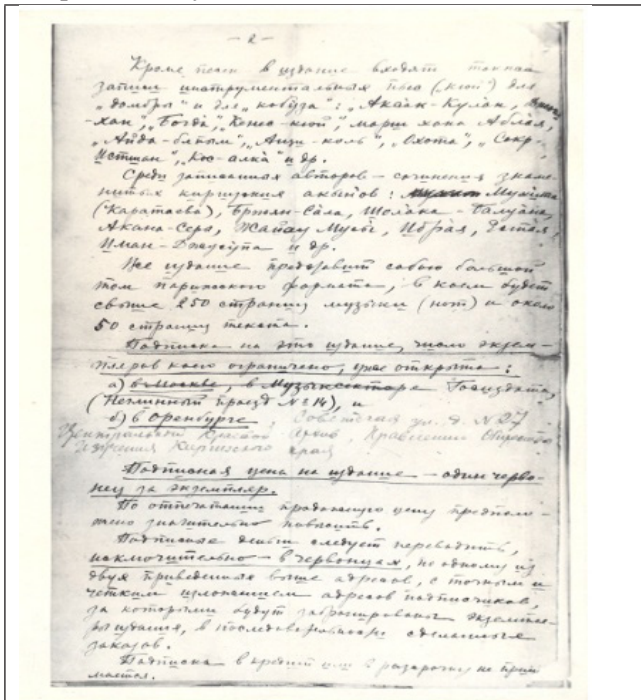 – 2 –
Кроме песен в издание входят также
записи инструментальных пьес („кюй“) для
„домбры“ и для „кобуза“: „Аксак-Кулан,
-хан“, „Богда“, „Кенес-кюй“, марш хана Аблая,
„Айда-блпым“, „Охота“, „Сокр-
Истшан“, „Кос-алка“ и др.
Среди записанных авторов – сочинения знаме-
нитых киргизских акынов: Мухита
(Каратаева), Бржан-Сала, Шолака-Балуана,
Акана-Сера, Жаяу Мусы, Ибрая, Естая,
Иман-Джусупа и др.
Все издание представит собою большой
том парижского формата, в коем будет
свыше 250 страниц музыки (нот) и около
50 страниц текста.
Подписка на это издание, число экзем-
пляров коего ограничено, уже открыта:
а) в Москве, в Музыксекторе Госиздата,
(Неглинный проезд № 14), и
б) в Оренбурге, Советская ул. д. № 27
Центральный Краевой Архив, Правление Общества
Изучения Киргизского края
Подписная цена на издание – один черво-
нец за экземпляр.
По отпечатании продажную цену предполо-
жено значительно повысить.
Подписные деньги следует переводить,
исключительно – в червонцах, по одному из
двух приведенных выше адресов, с точным и
четким изложением адресов подписчиков,
за которыми будут забронированы экземпля-
ры издания, в последовательности сделанных
заказов.
Подписка в кредит или в разсрочку не прини-
мается.